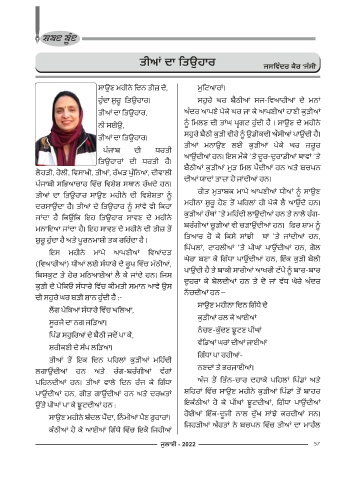 ਸ਼ਬਦ ਬੂੰਦ
ਤੀਆਂ ਦਾ ਤਿਉਹਾਰ
ਜਸਵਿੰਦਰ ਕੌਰ 'ਜੱਸੀ'
ਸਾਉਣ ਮਹੀਨੇ ਦਿਨ ਤੀਜ ਦੇ,
ਹੁੰਦਾ ਸ਼ੁਰੂ ਤਿਉਹਾਰ।
ਤੀਆਂ ਦਾ ਤਿਉਹਾਰ,
ਨੀ ਸਈਓ,
ਤੀਆਂ ਦਾ ਤਿਉਹਾਰ।
ਪੰਜਾਬ ਦੀ ਧਰਤੀ
ਤਿਉਹਾਰਾਂ ਦੀ ਧਰਤੀ ਹੈ।
ਲੋਹੜੀ, ਹੋਲੀ, ਵਿਸਾਖੀ, ਤੀਆਂ, ਰੱਖੜ ਪੁੰਨਿਆ, ਦੀਵਾਲੀ
ਪੰਜਾਬੀ ਸਭਿਆਚਾਰ ਵਿੱਚ ਵਿਸ਼ੇਸ਼ ਸਥਾਨ ਰੱਖਦੇ ਹਨ।
ਤੀਆਂ ਦਾ ਤਿਉਹਾਰ ਸਾਉਣ ਮਹੀਨੇ ਦੀ ਵਿਸ਼ੇਸ਼ਤਾ ਨੂੰ
ਦਰਸਾਉਂਦਾ ਹੈ। ਤੀਆਂ ਦੇ ਤਿਉਹਾਰ ਨੂੰ ਸਾਂਵੇ ਵੀ ਕਿਹਾ
ਜਾਂਦਾ ਹੈ ਕਿਉਂਕਿ ਇਹ ਤਿਉਹਾਰ ਸਾਵਣ ਦੇ ਮਹੀਨੇ
ਮਨਾਇਆ ਜਾਂਦਾ ਹੈ। ਇਹ ਸਾਵਣ ਦੇ ਮਹੀਨੇ ਦੀ ਤੀਜ ਤੋਂ
ਸ਼ੁਰੂ ਹੁੰਦਾ ਹੈ ਅਤੇ ਪੂਰਨਮਾਸ਼ੀ ਤਕ ਰਹਿੰਦਾ ਹੈ।
ਇਸ ਮਹੀਨੇ ਮਾਪੇ ਆਪਣੀਆਂ ਵਿਆਂਦੜ
(ਵਿਆਹੀਆਂ) ਧੀਆਂ ਲਈ ਸੰਧਾਰੇ ਦੇ ਰੂਪ ਵਿੱਚ ਮੱਠੀਆਂ,
ਬਿਸਕੁਟ ਤੇ ਹੋਰ ਮਠਿਆਈਆਂ ਲੈ ਕੇ ਜਾਂਦੇ ਹਨ। ਜਿਸ
ਕੁੜੀ ਦੇ ਪੇਕਿਓਂ ਸੰਧਾਰੇ ਵਿੱਚ ਕੀਮਤੀ ਸਮਾਨ ਆਵੇ ਉਸ
ਦੀ ਸਹੁਰੇ ਘਰ ਬੜੀ ਸ਼ਾਨ ਹੁੰਦੀ ਹੈ :-
ਲੌਂਗ ਪੇਕਿਆਂ ਸੰਧਾਰੇ ਵਿੱਚ ਘਲਿਆ,
ਸੂਰਜੇ ਦਾ ਨਗ ਜੜਿਆ।
ਪਿੰਡ ਸਹੁਰਿਆਂ ਦੇ ਬੈਠੀ ਜਦੋਂ ਪਾ ਕੇ,
ਸ਼ਰੀਕਣੀ ਦੇ ਸੱਪ ਲੜਿਆ।
ਤੀਆਂ ਤੋਂ ਇਕ ਦਿਨ ਪਹਿਲਾਂ ਕੁੜੀਆਂ ਮਹਿੰਦੀ
ਲਗਾਉਂਦੀਆਂ ਹਨ ਅਤੇ ਰੰਗ-ਬਰੰਗੀਆਂ ਵੰਗਾਂ
ਪਹਿਨਦੀਆਂ ਹਨ। ਤੀਆਂ ਵਾਲੇ ਦਿਨ ਰੱਜ ਕੇ ਗਿੱਧਾ
ਪਾਉਂਦੀਆਂ ਹਨ, ਗੀਤ ਗਾਉਂਦੀਆਂ ਹਨ ਅਤੇ ਦਰਖ਼ਤਾਂ
ਉੱਤੇ ਪੀਂਘਾਂ ਪਾ ਕੇ ਝੂਟਦੀਆਂ ਹਨ :
ਸਾਉਣ ਮਹੀਨੇ ਬੱਦਲ ਪੈਂਦਾ, ਨਿੰਮੀਆਂ ਪੈਣ ਫੁਹਾਰਾਂ।
ਕੱਠੀਆਂ ਹੋ ਕੇ ਆਈਆਂ ਗਿੱਧੇ ਵਿੱਚ ਇਕੋ ਜਿਹੀਆਂ
ਮੁਟਿਆਰਾਂ।
ਸਹੁਰੇ ਘਰ ਬੈਠੀਆਂ ਸਜ-ਵਿਆਹੀਆਂ ਦੇ ਮਨਾਂ
ਅੰਦਰ ਆਪਣੇ ਪੇਕੇ ਘਰ ਜਾ ਕੇ ਆਪਣੀਆਂ ਹਾਣੀ ਕੁੜੀਆਂ
ਨੂੰ ਮਿਲਣ ਦੀ ਤਾਂਘ ਪ੍ਰਗਟ ਹੁੰਦੀ ਹੈ। ਸਾਉਣ ਦੇ ਮਹੀਨੇ
ਸਹੁਰੇ ਬੈਠੀ ਕੁੜੀ ਵੀਰੇ ਨੂੰ ਉਡੀਕਦੀ ਔਸੀਆਂ ਪਾਉਂਦੀ ਹੈ।
ਤੀਆਂ ਮਨਾਉਣ ਲਈ ਕੁੜੀਆਂ ਪੇਕੇ ਘਰ ਜ਼ਰੂਰ
ਆਉਂਦੀਆਂ ਹਨ। ਇਸ ਮੌਕੇ 'ਤੇ ਦੂਰ-ਦੁਰਾਡੀਆਂ ਥਾਵਾਂ 'ਤੇ
ਬੈਠੀਆਂ ਕੁੜੀਆਂ ਮੁੜ ਮਿਲ ਪੈਂਦੀਆਂ ਹਨ ਅਤੇ ਬਚਪਨ
ਦੀਆਂ ਯਾਦਾਂ ਤਾਜ਼ਾ ਹੋ ਜਾਂਦੀਆਂ ਹਨ।
ਰੀਤ ਮੁਤਾਬਕ ਮਾਪੇ ਆਪਣੀਆਂ ਧੀਆਂ ਨੂੰ ਸਾਉਣ
ਮਹੀਨਾ ਸ਼ੁਰੂ ਹੋਣ ਤੋਂ ਪਹਿਲਾਂ ਹੀ ਪੇਕੇ ਲੈ ਆਉਂਦੇ ਹਨ।
ਕੁੜੀਆਂ ਹੱਥਾਂ 'ਤੇ ਮਹਿੰਦੀ ਲਾਉਂਦੀਆਂ ਹਨ ਤੇ ਨਾਲੇ ਰੰਗ-
ਬਰੰਗੀਆਂ ਚੂੜੀਆਂ ਵੀ ਚੜਾਉਂਦੀਆਂ ਹਨ। ਫਿਰ ਸ਼ਾਮ ਨੂੰ
ਤਿਆਰ ਹੋ ਕੇ ਕਿਸੇ ਸਾਂਝੀ ਥਾਂ 'ਤੇ ਜਾਂਦੀਆਂ ਹਨ,
ਪਿੱਪਲਾਂ, ਟਾਹਲੀਆਂ 'ਤੇ ਪੀਂਘਾਂ ਪਾਉਂਦੀਆਂ ਹਨ, ਗੋਲ
ਘੇਰਾ ਬਣਾ ਕੇ ਗਿੱਧਾ ਪਾਉਂਦੀਆਂ ਹਨ, ਇੱਕ ਕੁੜੀ ਬੋਲੀ
ਪਾਉਂਦੀ ਹੈ ਤੇ ਬਾਕੀ ਸਾਰੀਆਂ ਆਖਰੀ ਟੱਪੇ ਨੂੰ ਬਾਰ-ਬਾਰ
ਦੁਹਰਾ ਕੇ ਬੋਲਦੀਆਂ ਹਨ ਤੇ ਦੋ ਜਾਂ ਵੱਧ ਘੇਰੇ ਅੰਦਰ
ਨੱਚਦੀਆਂ ਹਨ –
ਸਾਉਣ ਮਹੀਨਾ ਦਿਨ ਗਿੱਧੇ ਦੇ
ਕੁੜੀਆਂ ਰਲ ਕੇ ਆਈਆਂ
ਨੱਚਣ-ਕੁੱਦਣ ਝੂਟਣ ਪੀਂਘਾਂ
ਵੱਡਿਆਂ ਘਰਾਂ ਦੀਆਂ ਜਾਈਆਂ
ਗਿੱਧਾ ਪਾ ਰਹੀਆਂ-
ਨਣਦਾਂ ਤੇ ਭਰਜਾਈਆਂ।
ਅੱਜ ਤੋਂ ਤਿੰਨ-ਚਾਰ ਦਹਾਕੇ ਪਹਿਲਾਂ ਪਿੰਡਾਂ ਅਤੇ
ਸ਼ਹਿਰਾਂ ਵਿੱਚ ਸਾਉਣ ਮਹੀਨੇ ਕੁੜੀਆਂ ਪਿੰਡਾਂ ਤੋਂ ਬਾਹਰ
ਇਕੱਠੀਆਂ ਹੋ ਕੇ ਪੀਂਘਾਂ ਝੂਟਦੀਆਂ, ਗਿੱਧਾ ਪਾਉਂਦੀਆਂ
ਹੋਈਆਂ ਇੱਕ-ਦੂਜੀ ਨਾਲ ਦੁੱਖ ਸਾਂਝੇ ਕਰਦੀਆਂ ਸਨ।
ਜਿਹੜੀਆਂ ਔਰਤਾਂ ਨੇ ਬਚਪਨ ਵਿੱਚ ਤੀਆਂ ਦਾ ਮਾਹੌਲ
ਜੁਲਾਈ - 2022
57